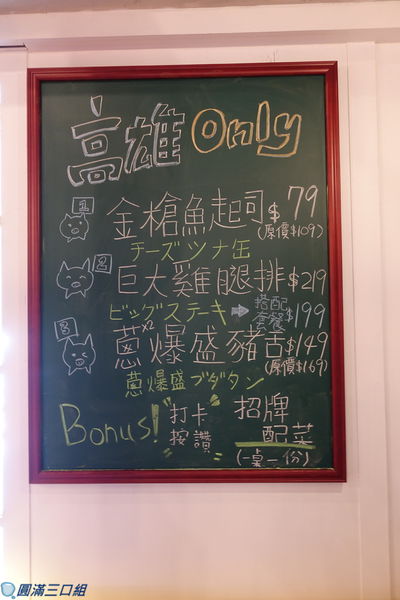 高雄 Only
金槍魚起司 $79
(原價$109)
チーズツナ缶
巨大雞腿排 $219
ビッグステーキ ➡ 搭配套餐 $199
蔥x2爆盛豬舌 $149
(原價$169)
蔥爆盛ブダタン
Bonus! 打卡按讚 招牌配菜
(一桌一份)
圓滿三口組